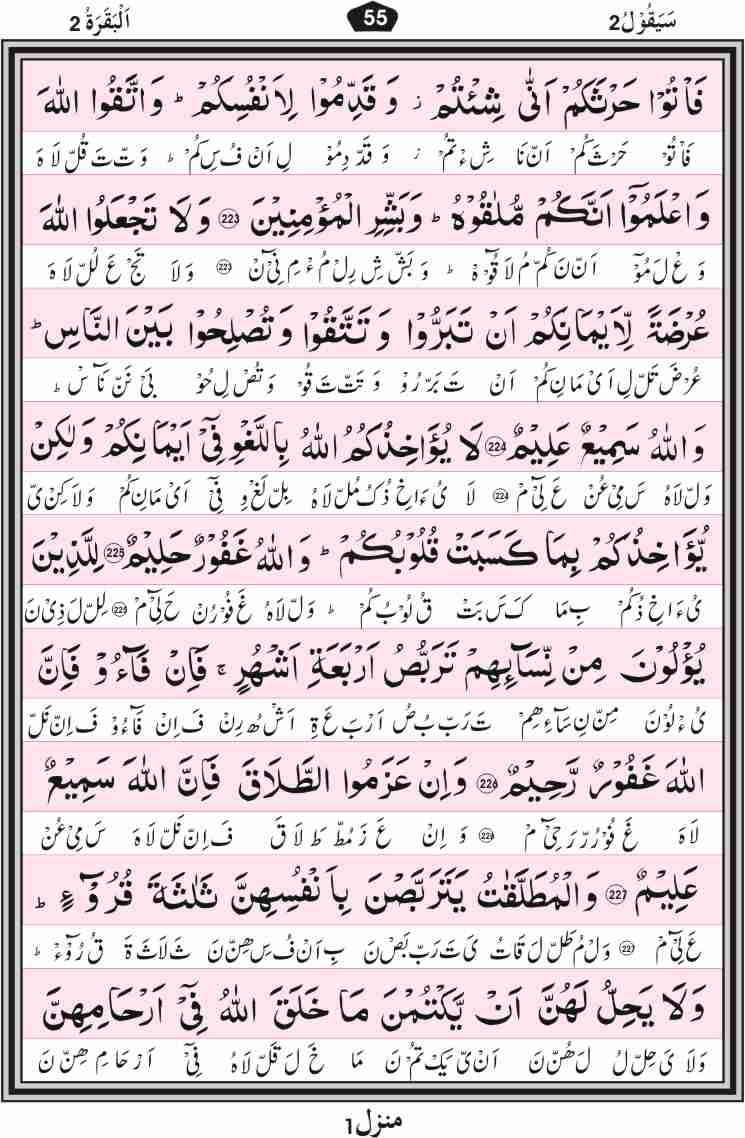 سَيَقُوْلُ2 55 اَلْبَقَرَةُ 2
فَاْتُوْا حَرْثَكُمْ اَنّٰى شِئْتُمْ ز وَ قَدِّمُوْا لِاَنْفُسِكُمْ ط وَ اتَّقُوا اللّٰهَ
فَاْتُوْ حَرْثَكُمْ اَنْ نَا شِءْ تُمْ ز وَ قَدْ دِمُوْ لِ اَنْ فُ سِ كُمْ ط وَ تْ تَ قُلْ لَا هَ
وَ اعْلَمُوْۤا اَنَّكُمْ مُّلٰقُوْهُ ط وَ بَشِّرِ الْمُؤْمِنِيْنَ 223 وَ لَا تَجْعَلُوا اللّٰهَ
وَ عْ لَ مُوْۤ اَنْ نَ كُمْ مُ لَا قُوْٓ هْ ط وَ بَشْ شِ رِلْ مُ ءْ مِ نِيْٓ نْ 223 وَ لَا تَجْ عَ لُلْ لَا هَ
عُرْضَةً لِّاَيْمَانِكُمْ اَنْ تَبَرُّوْا وَ تَتَّقُوْا وَ تُصْلِحُوْا بَيْنَ النَّاسِ ط
عُرْضَ تَلْ لِ اَىْ مَا نِ كُمْ اَنْ تَ بَرْ رُوْ وَ تَتْ تَ قُوْ وَ تُصْ لِ حُوْ بَىْ نَنْ نَآ سْ ط
وَ اللّٰهُ سَمِيْعٌ عَلِيْمٌ 224 لَا يُؤَاخِذُكُمُ اللّٰهُ بِاللَّغْوِ فِيْۤ اَيْمَانِكُمْ وَ لٰكِنْ
وَلْ لَا هُ سَ مِىْ عُنْ عَ لِىْٓ مْ 224 لَا ىُ ءَا خِ ذُ كُ مُلْ لَا هُ بِلْ لَغْ وِ فِىْٓ اَىْ مَا نِ كُمْ وَ لَا كِنْ ىّ
يُّؤَاخِذُكُمْ بِمَا كَسَبَتْ قُلُوْبُكُمْ ط وَ اللّٰهُ غَفُوْرٌ حَلِيْمٌ 225 لِلَّذِيْنَ
ىُ ءَا خِ ذُ كُمْ بِ مَا كَ سَ بَتْ قُ لُوْ بُ كُمْ ط وَلْ لَا هُ غَ فُوْ رُنْ حَ لِىْٓ مْ 225 لِلْ لَ ذِىْ نَ
يُؤْلُوْنَ مِنْ نِّسَآىِٕهِمْ تَرَبُّصُ اَرْبَعَةِ اَشْهُرٍ ج فَاِنْ فَآءُوْ فَاِنَّ
ىُ ءْ لُوْ نَ مِنْ نِ سَآ ءِ هِمْ تَ رَبْ بُ صُ اَرْ بَ عَ ةِ اَشْ هُ رِنْ فَ اِنْ فَآ ءُوْ فَ اِنْ نَلْ
اللّٰهَ غَفُوْرٌ رَّحِيْمٌ 226 وَ اِنْ عَزَمُوا الطَّلَاقَ فَاِنَّ اللّٰهَ سَمِيْعٌ
لَا هَ غَ فُوْ رُرْ رَ حِىْٓ مْ 226 وَ اِنْ عَ زَ مُطْ طَ لَا قَ فَ اِنْ نَلْ لَا هَ سَ مِىْ عُنْ
عَلِيْمٌ 227 وَ الْمُطَلَّقٰتُ يَتَرَبَّصْنَ بِاَنْفُسِهِنَّ ثَلٰثَةَ قُرُوْٓءٍ ط
عَ لِىْٓ مْ 227 وَلْ مُ طَلْ لَ قَا تُ ىَ تَ رَبْ بَصْ نَ بِ اَنْ فُ سِ هِنْ نَ ثَ لَا ثَ ةَ قُ رُوْٓ ءْ ط
وَ لَا يَحِلُّ لَهُنَّ اَنْ يَّكْتُمْنَ مَا خَلَقَ اللّٰهُ فِيْۤ اَرْحَامِهِنَّ
وَ لَا ىَ حِلْ لُ لَ هُنْ نَ اَنْ ىّ يَكْ تُمْ نَ مَا خَ لَ قَلْ لَا هُ فِىْٓ اَرْ حَا مِ هِنْ نَ
منزل 1